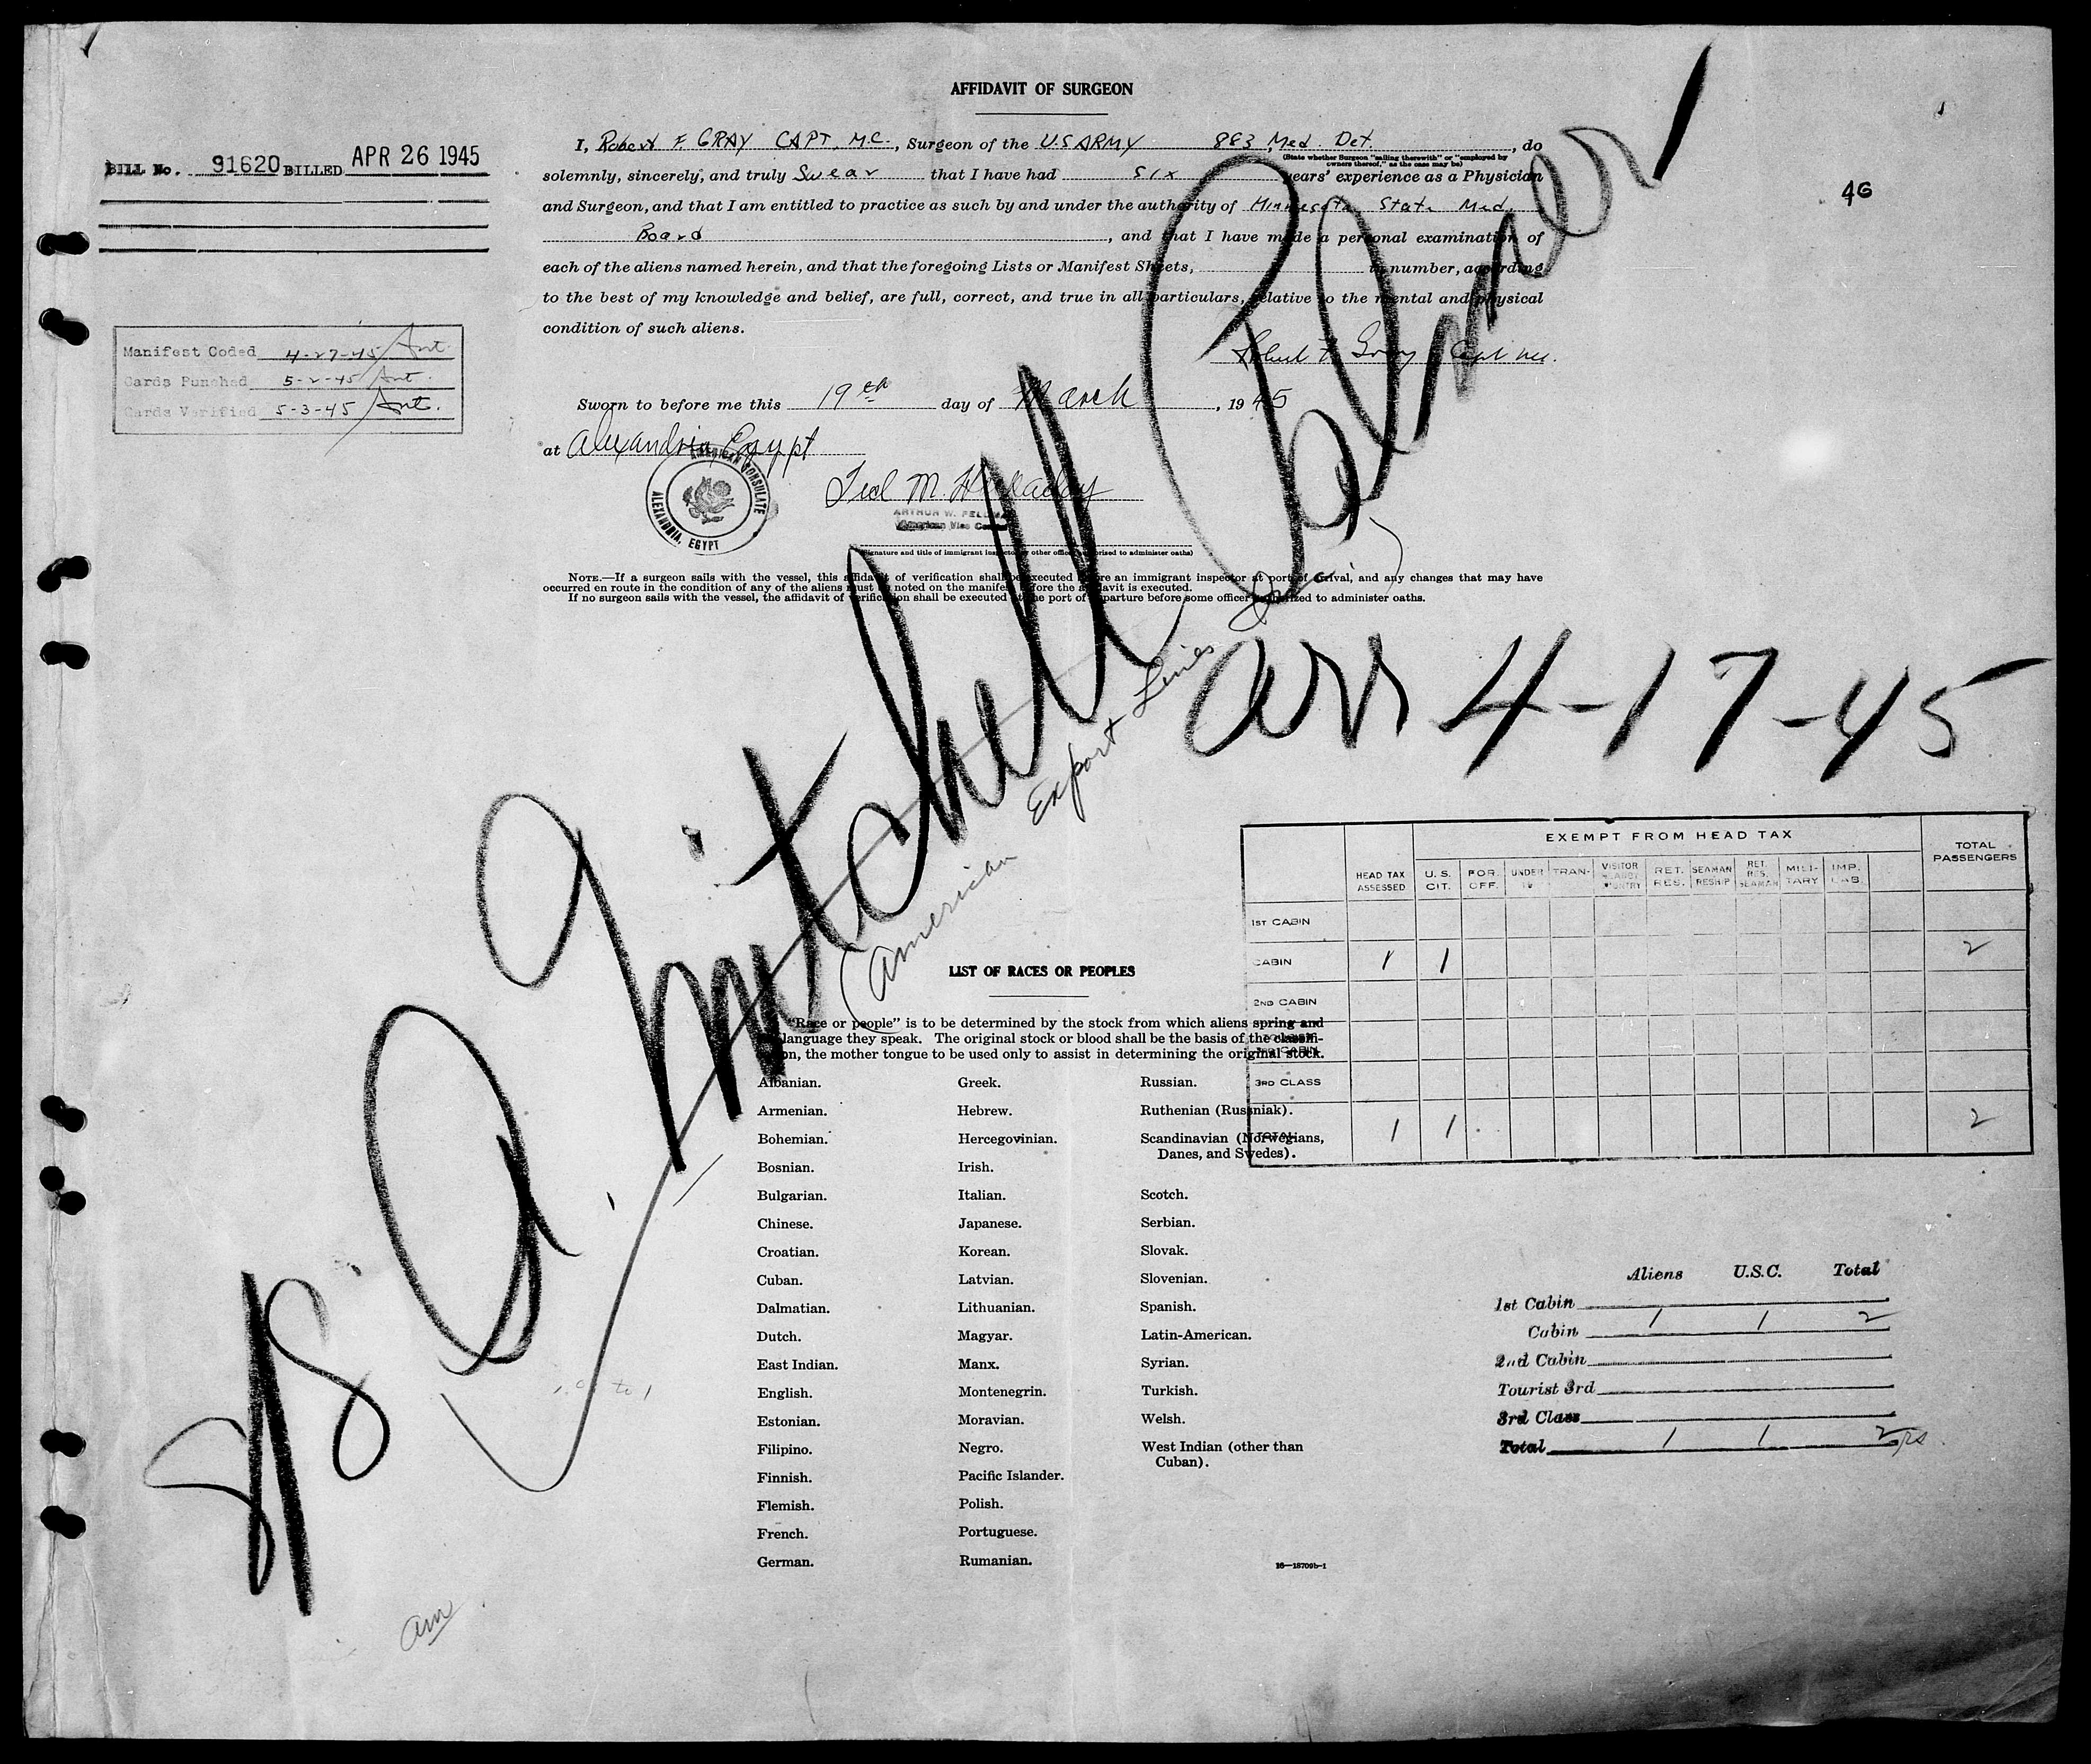 AFFIDAVIT OF SURGEON
BILL No. 91620 BILLED APR 26 1945
I, Robert F GRAY CAPT. M.C., Surgeon of the U.S ARMY 883 Med. Det., do
(State whether Surgeon "sailing therewith" or "employed by
owners thereof," as the case may be)
solemnly, sincerely, and truly Swear that I have had Six years' experience as a Physician
and Surgeon, and that I am entitled to practice as such by and under the authority of Minnesota State Med.
Board, and that I have made a personal examination of
each of the aliens named herein, and that the foregoing Lists or Manifest Sheets, in number, according
to the best of my knowledge and belief, are full, correct, and true in all particulars, relative to the mental and physical
condition of such aliens.
46
Manifest Coded 4-27-45
Cards Punched 5-2-45
Cards Verified 5-3-45
Robert F. Gray Capt MC.
Sworn to before me this 19th day of March, 1945
at Alexandria, Egypt
AMERICAN CONSULATE
ALEXANDRIA, EGYPT
Ted M. Holladay
ARTHUR W. FELLMAN
American Vice Consul
(Signature and title of immigrant inspector or other officer authorized to administer oaths)
NOTE.—If a surgeon sails with the vessel, this affidavit of verification shall be executed before an immigrant inspector at port of arrival, and any changes that may have
occurred en route in the condition of any of the aliens must be noted on the manifest before the affidavit is executed.
If no surgeon sails with the vessel, the affidavit of verification shall be executed at the port of departure before some officer authorized to administer oaths.
S/S. A. Mitchell Palmer
(American Export Lines Inc.)
arr 4-17-45
EXEMPT FROM HEAD TAX
HEAD TAX ASSESSED U.S. CIT. FOR. OFF. UNDER 16 TRAN- VISITOR COUNTRY RET. RES. SEAMAN RESHIP RET. RES. SEAMAN MILI- TARY IMP. LAB. TOTAL PASSENGERS
1ST CABIN
CABIN 1 1 2
2ND CABIN
3RD CABIN
3RD CLASS
TOTAL 1 1 2
LIST OF RACES OR PEOPLES
"Race or people" is to be determined by the stock from which aliens spring and
language they speak. The original stock or blood shall be the basis of the classifi-
on, the mother tongue to be used only to assist in determining the original stock.
Albanian.
Armenian.
Bohemian.
Bosnian.
Bulgarian.
Chinese.
Croatian.
Cuban.
Dalmatian.
Dutch.
East Indian.
English.
Estonian.
Filipino.
Finnish.
Flemish.
French.
German.
Greek.
Hebrew.
Hercegovinian.
Irish.
Italian.
Japanese.
Korean.
Latvian.
Lithuanian.
Magyar.
Manx.
Montenegrin.
Moravian.
Negro.
Pacific Islander.
Polish.
Portuguese.
Rumanian.
Russian.
Ruthenian (Russniak).
Scandinavian (Norwegians,
Danes, and Swedes).
Scotch.
Serbian.
Slovak.
Slovenian.
Spanish.
Latin-American.
Syrian.
Turkish.
Welsh.
West Indian (other than
Cuban).
16—18709b-1
Aliens U.S.C. Total
1st Cabin
Cabin 1 1 2
2nd Cabin
Tourist 3rd
3rd Class
Total 1 1 2
am